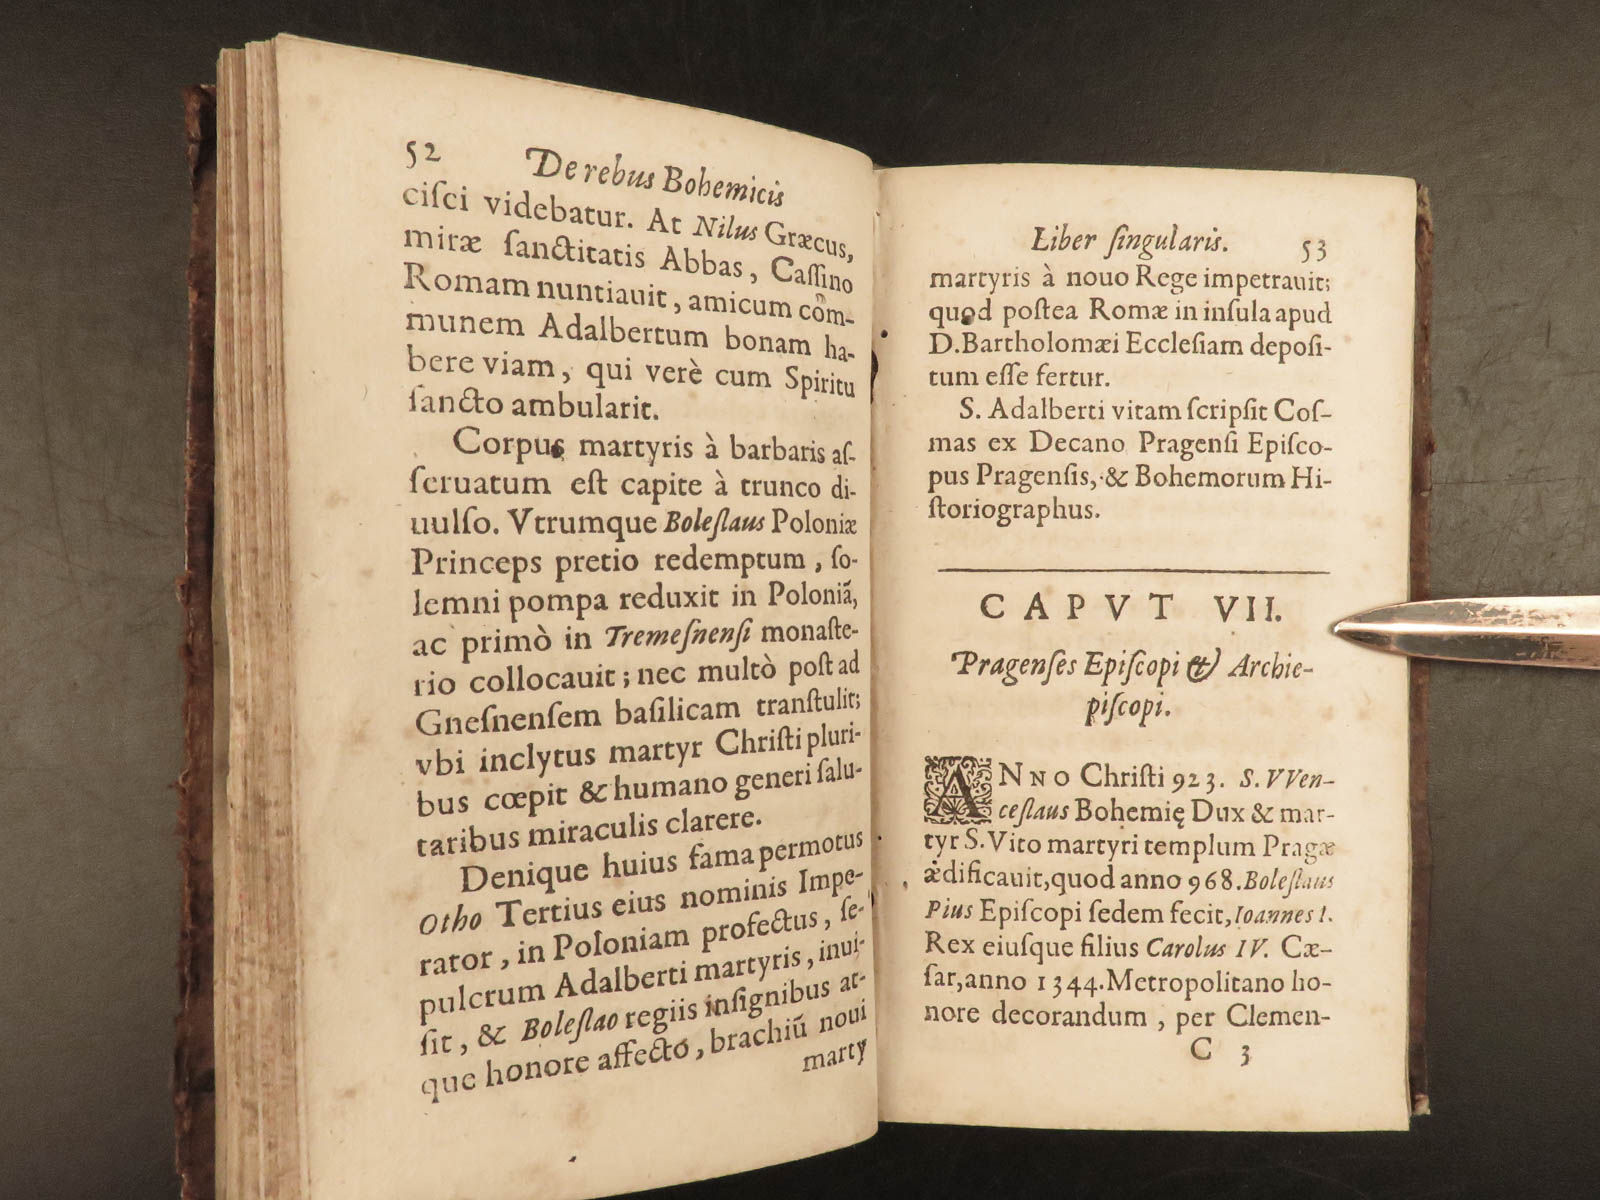 52 De rebus Bohemicis
ciſci videbatur. At Nilus Græcus,
miræ ſanctitatis Abbas, Caſſino
Romam nuntiauit, amicum com̃-
munem Adalbertum bonam ha-
bere viam, qui verè cum Spiritu
ſancto ambularit.
Corpus martyris à barbaris aſ-
ſeruatum eſt capite à trunco di-
uulſo. Vtrumque Boleſlaus Poloniæ
Princeps pretio redemptum, ſo-
lemni pompa reduxit in Poloniã,
ac primò in Tremeſnenſi monaſte-
rio collocauit; nec multò poſt ad
Gneſnenſem baſilicam tranſtulit;
vbi inclytus martyr Chriſti pluri-
bus cœpit & humano generi ſalu-
taribus miraculis clarere.
Denique huius fama permotus
Otho Tertius eius nominis Impe-
rator, in Poloniam profectus, ſe-
pulcrum Adalberti martyris, inui-
ſit, & Boleſlao regiis inſignibus at-
que honore affecto, brachiũ noui
marty
Liber ſingularis. 53
martyris à nouo Rege impetrauit;
quod poſtea Romæ in inſula apud
D. Bartholomæi Eccleſiam depoſi-
tum eſſe fertur.
S. Adalberti vitam ſcripſit Coſ-
mas ex Decano Pragenſi Epiſco-
pus Pragenſis, & Bohemorum Hi-
ſtoriographus.
CAPVT VII.
Pragenſes Epiſcopi & Archie-
piſcopi.
ANNO Chriſti 923. S. VVen-
ceſlaus Bohemię Dux & mar-
tyr S. Vito martyri templum Pragæ
ædificauit, quod anno 968. Boleſlaus
Pius Epiſcopi ſedem fecit, Ioannes I.
Rex eiuſque filius Carolus IV. Cæ-
ſar, anno 1344. Metropolitano ho-
nore decorandum, per Clemen-
C 3